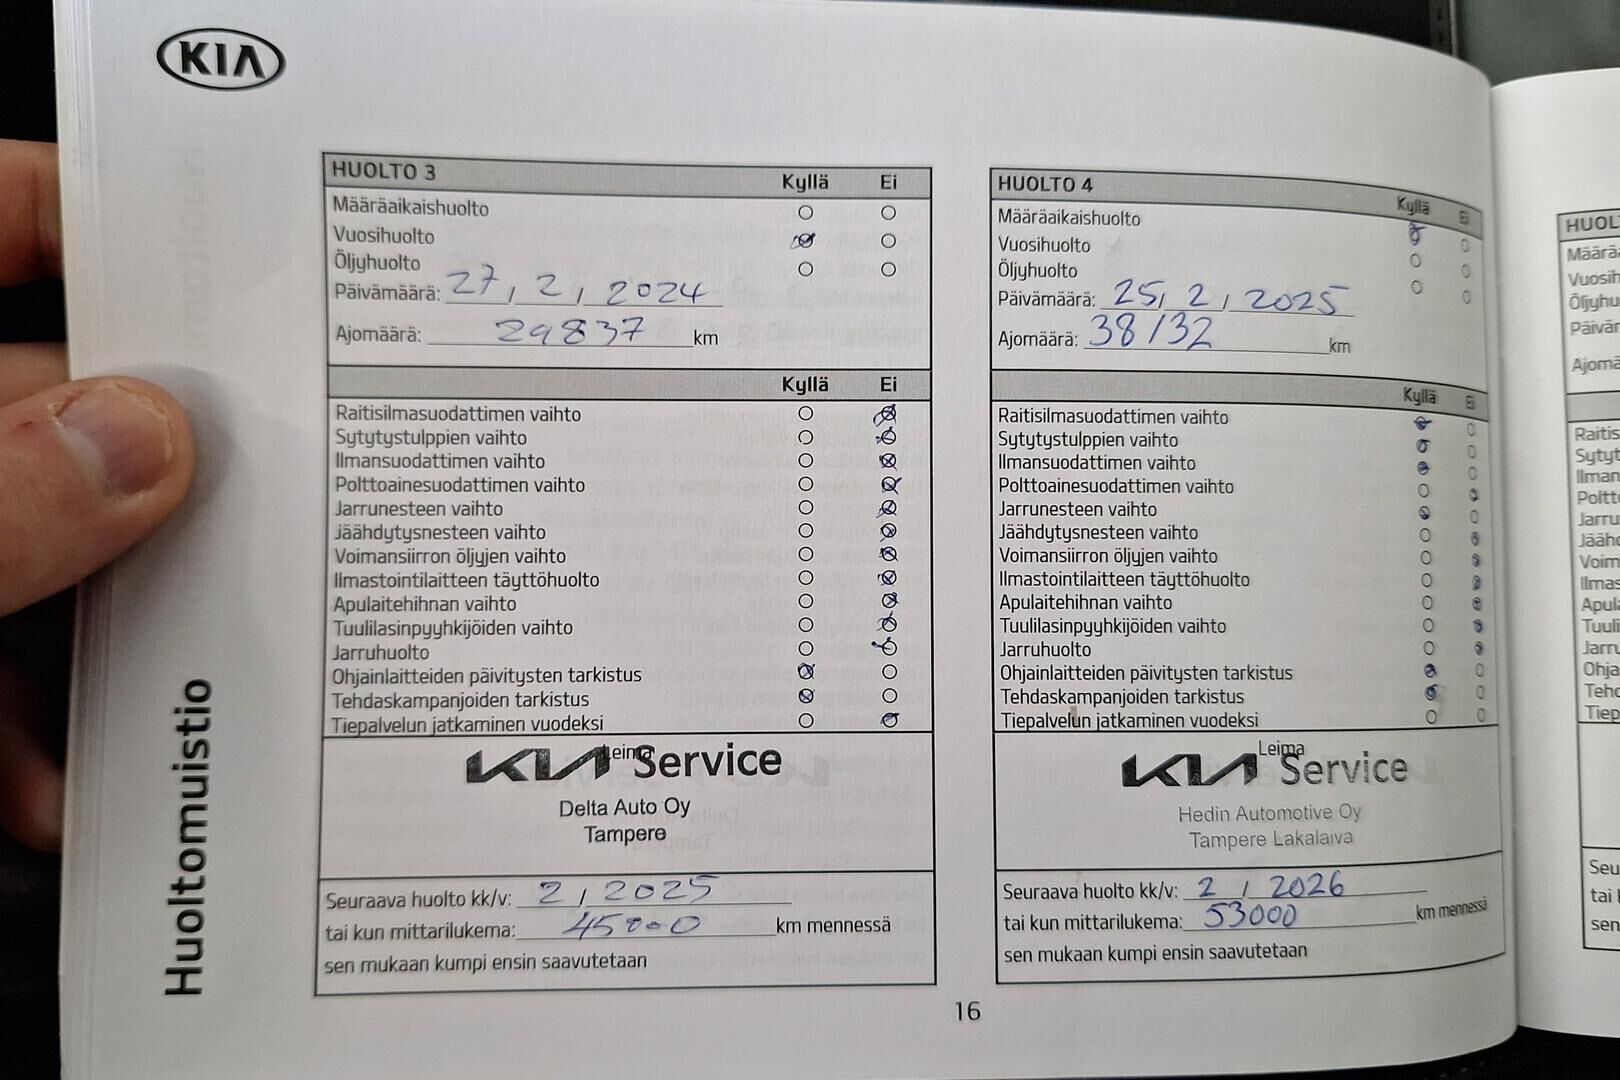 KIA
Huoltomuistio
HUOLTO 3 Kyllä Ei
Määräaikaishuolto
Vuosihuolto
Öljyhuolto
Päivämäärä: 27 / 2 / 2024
Ajomäärä: 29837 km
Kyllä Ei
Raitisilmasuodattimen vaihto
Sytytystulppien vaihto
Ilmansuodattimen vaihto
Polttoainesuodattimen vaihto
Jarrunesteen vaihto
Jäähdytysnesteen vaihto
Voimansiirron öljyjen vaihto
Ilmastointilaitteen täyttöhuolto
Apulaitehihnan vaihto
Tuulilasinpyyhkijöiden vaihto
Jarruhuolto
Ohjainlaitteiden päivitysten tarkistus
Tehdaskampanjoiden tarkistus
Tiepalvelun jatkaminen vuodeksi
Leima
KIA Service
Delta Auto Oy
Tampere
Seuraava huolto kk/v: 2 / 2025
tai kun mittarilukema: 45000 km mennessä
sen mukaan kumpi ensin saavutetaan
HUOLTO 4 Kyllä Ei
Määräaikaishuolto
Vuosihuolto
Öljyhuolto
Päivämäärä: 25 / 2 / 2025
Ajomäärä: 38132 km
Kyllä Ei
Raitisilmasuodattimen vaihto
Sytytystulppien vaihto
Ilmansuodattimen vaihto
Polttoainesuodattimen vaihto
Jarrunesteen vaihto
Jäähdytysnesteen vaihto
Voimansiirron öljyjen vaihto
Ilmastointilaitteen täyttöhuolto
Apulaitehihnan vaihto
Tuulilasinpyyhkijöiden vaihto
Jarruhuolto
Ohjainlaitteiden päivitysten tarkistus
Tehdaskampanjoiden tarkistus
Tiepalvelun jatkaminen vuodeksi
Leima
KIA Service
Hedin Automotive Oy
Tampere Lakalaiva
Seuraava huolto kk/v: 2 / 2026
tai kun mittarilukema: 53000 km mennessä
sen mukaan kumpi ensin saavutetaan
16
HUOL
Määrä
Vuosih
Öljyhu
Päivär
Ajomä
Raitis
Sytyt
Ilman
Poltt
Jarru
Jääh
Voim
Ilmas
Apul
Tuuli
Jarru
Ohja
Tehd
Tiep
Seu
tai
sen